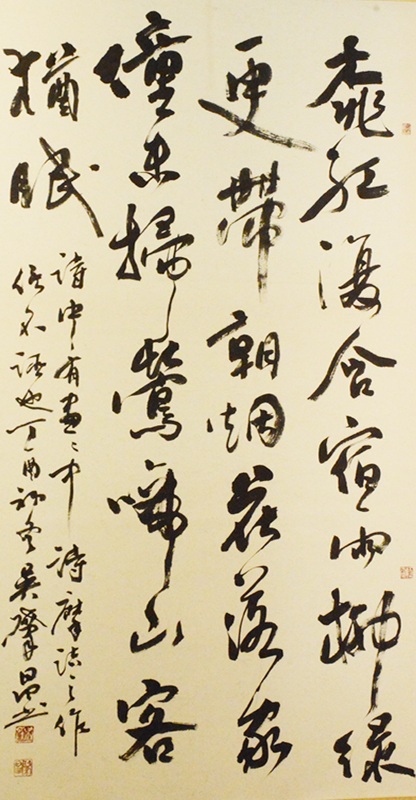 桃紅復含宿雨柳綠
更帶朝烟花落家
僮未掃鶯啼山客
猶眠
詩中有畫〻中詩摩詰之作
也丁酉初冬吳肇